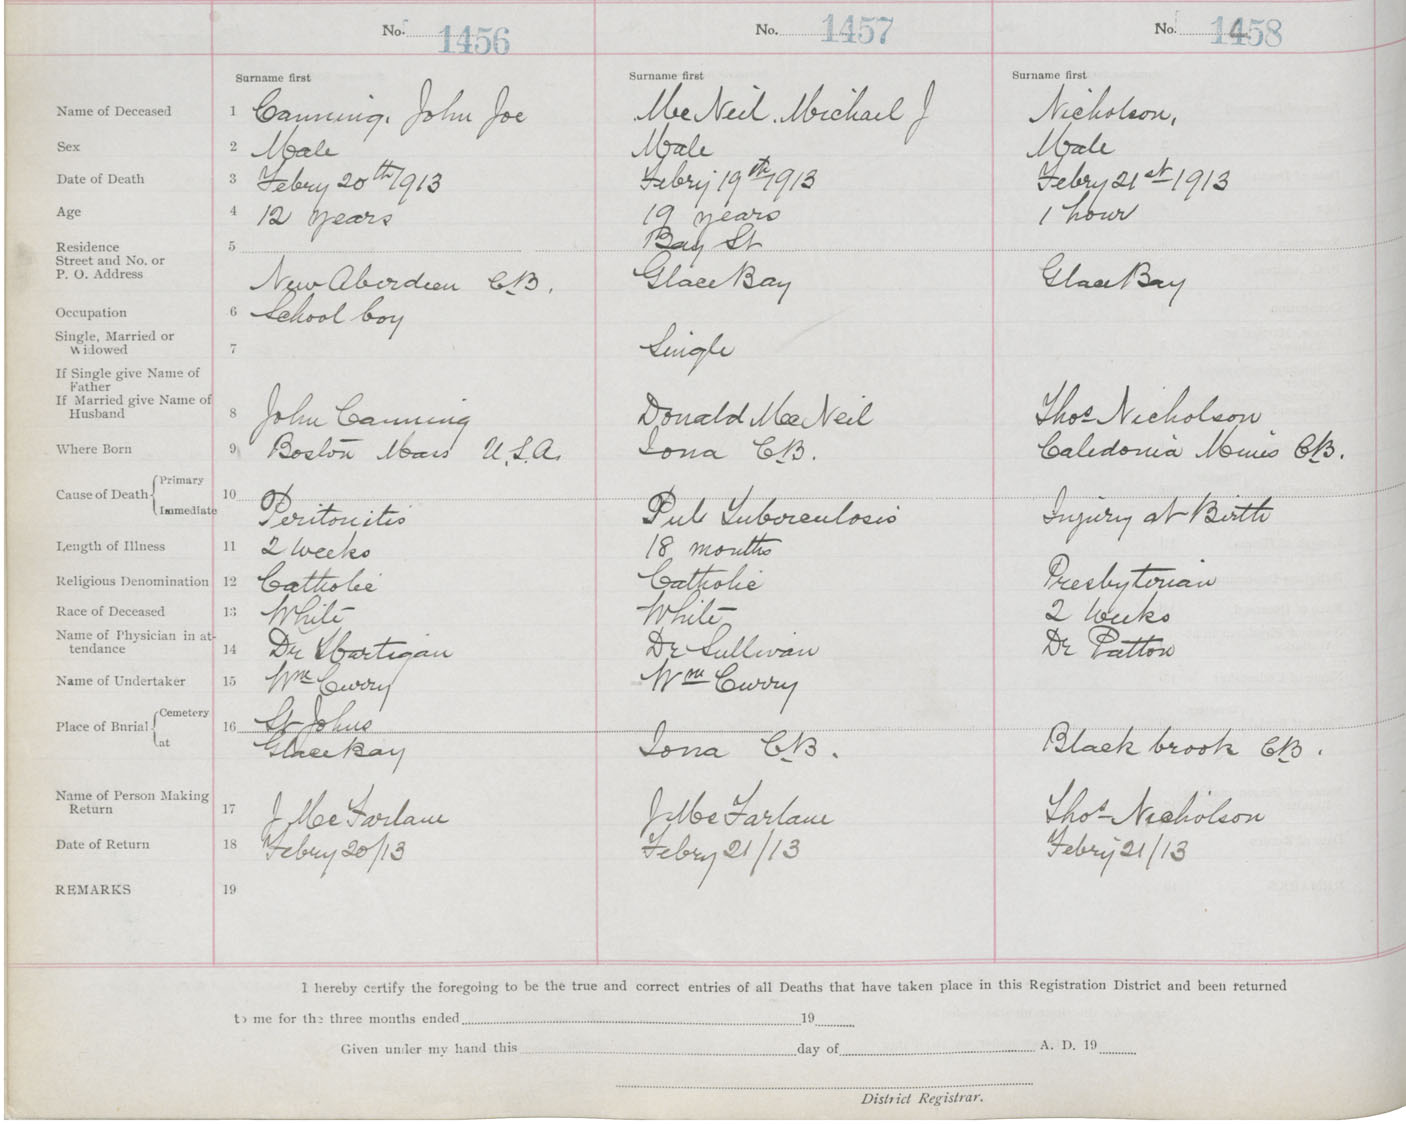 No. 1456 No. 1457 No. 1458
Surname first Surname first Surname first
Name of Deceased 1 Canning, John Joe McNeil, Michael J Nicholson,
Sex 2 Male Male Male
Date of Death 3 Febry 20th 1913 Febry 19th 1913 Febry 21st 1913
Age 4 12 years 19 years 1 hour
Residence 5 Bay St
Street and No. or
P. O. Address New Aberdeen C.B. Glace Bay Glace Bay
Occupation 6 School boy
Single, Married or
Widowed 7 Single
If Single give Name of
Father
If Married give Name of
Husband 8 John Canning Donald McNeil Thos Nicholson
Where Born 9 Boston Mass U.S.A. Iona C.B. Caledonia Mines C.B.
Cause of Death Primary 10
Immediate Peritonitis Pul Tuberculosis Injury at Birth
Length of Illness 11 2 weeks 18 months
Religious Denomination 12 Catholic Catholic Presbyterian
Race of Deceased 13 White White 2 weeks
Name of Physician in at-
tendance 14 Dr Hartigan Dr Sullivan Dr Patton
Name of Undertaker 15 Wm Curry Wm Curry
Place of Burial Cemetery 16 St Johns
at Glace Bay Iona C.B. Black brook C.B.
Name of Person Making
Return 17 J McFarlane J McFarlane Thos Nicholson
Date of Return 18 Febry 20/13 Febry 21/13 Febry 21/13
REMARKS 19
I hereby certify the foregoing to be the true and correct entries of all Deaths that have taken place in this Registration District and been returned
to me for the three months ended 19
Given under my hand this day of A. D. 19
District Registrar.